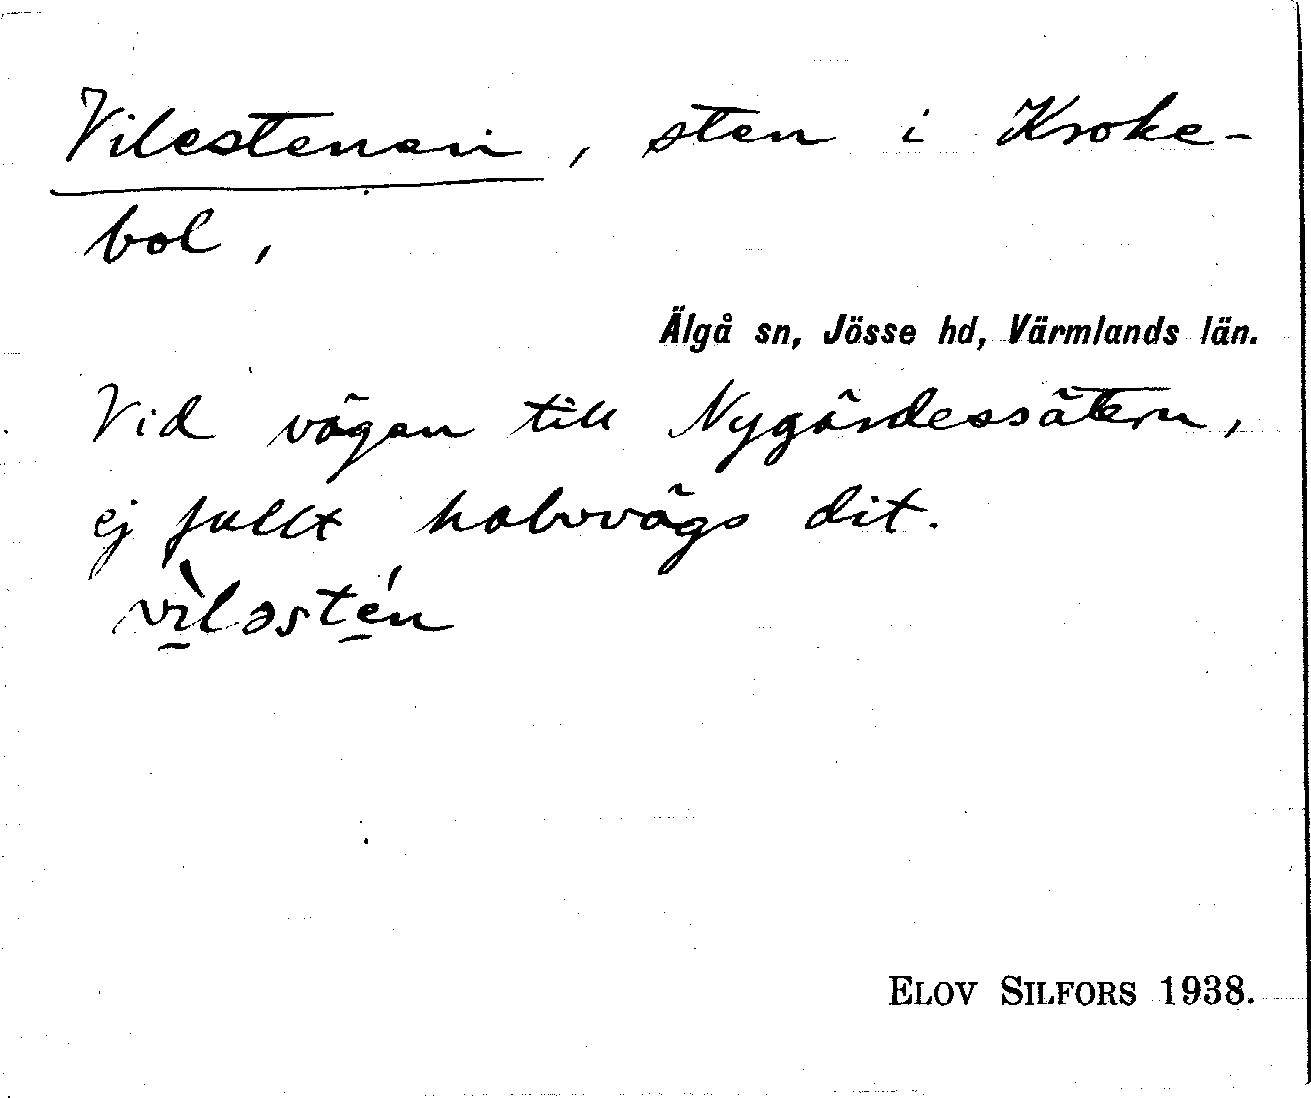 Vilestenen, sten i Kroke-
bol,
Älgå sn, Jösse hd, Värmlands län.
Vid vägen till Nygårdessätern,
ej fullt halvvägs dit.
vı̀ləstén
ELOV SILFORS 1938.